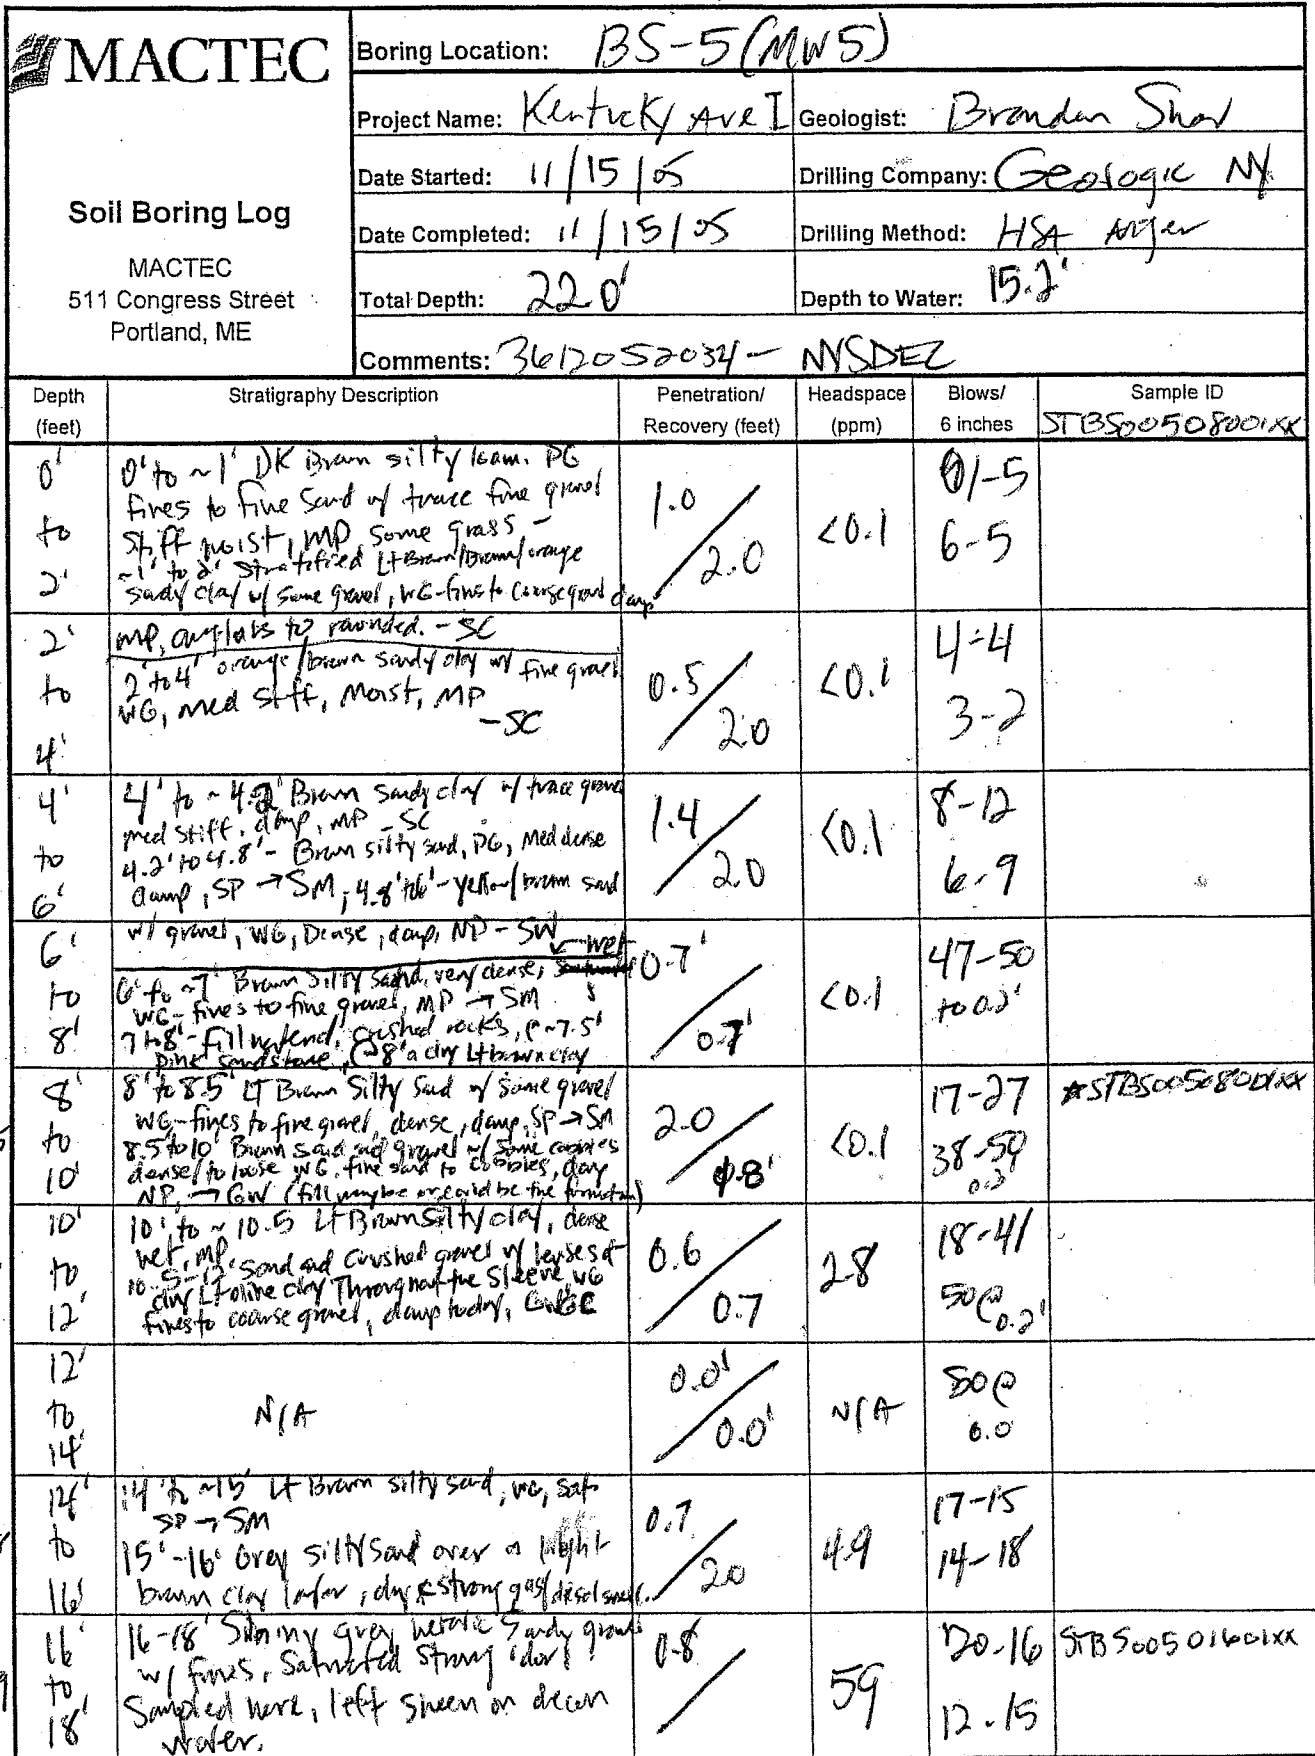 MACTEC
Soil Boring Log
MACTEC
511 Congress Street
Portland, ME
Boring Location: BS-5 (MW5)
Project Name: Kentucky Ave I Geologist: Brandon Shaw
Date Started: 11/15/05 Drilling Company: Geologic NY
Date Completed: 11/15/05 Drilling Method: HSA Auger
Total Depth: 22.0' Depth to Water: 15.2'
Comments: 3612052034 - NYSDEC
Depth (feet) Stratigraphy Description Penetration/ Recovery (feet) Headspace (ppm) Blows/ 6 inches Sample ID STBS00508001XX
0' to 2'
0' to ~1' DK Brown silty loam. PG
fines to fine sand w/ trace fine gravel
stiff moist, MP, some grass -
~1' to 2' Stratified Lt Brown/Brown/orange
sandy clay w/ some gravel, WG-fines to coarse gravel damp
1.0 / 2.0 <0.1 01-5 6-5
2' to 4'
MP, angular to rounded. - SC
2' to 4' orange/brown sandy clay w/ fine gravel
WG, med stiff, moist, MP
- SC
0.5 / 2.0 <0.1 4-4 3-2
4' to 6'
4' to ~4.2' Brown sandy clay w/ trace gravel
med stiff, damp, MP - SC
4.2' to 4.8' - Brown silty sand, PG, Med dense
damp, SP → SM, 4.8' to 6' - yellow/brown sand
1.4 / 2.0 <0.1 8-12 6-9
6' to 8'
w/ gravel, WG, Dense, damp, NP - SW
wet
6' to ~7' Brown silty sand, very dense,
WG - fines to fine gravel, MP → SM
7 to 8' - fill material, crushed rocks, @~7.5'
pink sandstone, @~8' a dry Lt brown clay
0.7' / 0.7' <0.1 47-50 to 0.2'
8' to 10'
8' to 8.5' LT Brown Silty Sand w/ some gravel
WG-fines to fine gravel, dense, damp, SP → SM
8.5 to 10' Brown sand and gravel w/ some cobbles
dense/to loose WG, fine sand to cobbles, damp
NP, → GW (fill maybe or could be the formation)
2.0 / 1.8' <0.1 17-27 38-50 0.3' *STBS00508001XX
10' to 12'
10' to ~10.5 LT Brown silty clay, dense
wet, MP.
10.5-12' Sand and crushed gravel w/ lenses of
dry Lt olive clay Throughout the sleeve, WG
fines to coarse gravel, damp to dry, GC
0.6 / 0.7 28 18-41 50@ 0.2'
12' to 14'
N/A 0.0' / 0.0' N/A 50@ 0.0'
14' to 16'
14' to ~15' Lt Brown silty sand, WG, sat.
SP → SM
15'-16' Grey silty sand over a light
brown clay layer, dry & strong gas/diesel smell.
0.7 / 2.0 49 17-15 14-18
16' to 18'
16-18' grey Sandy gravel
w/ fines, Saturated Strong odor!
Sampled here, left sheen on decon
water.
0.8 / 59 20-16 12-15 STBS00501601XX